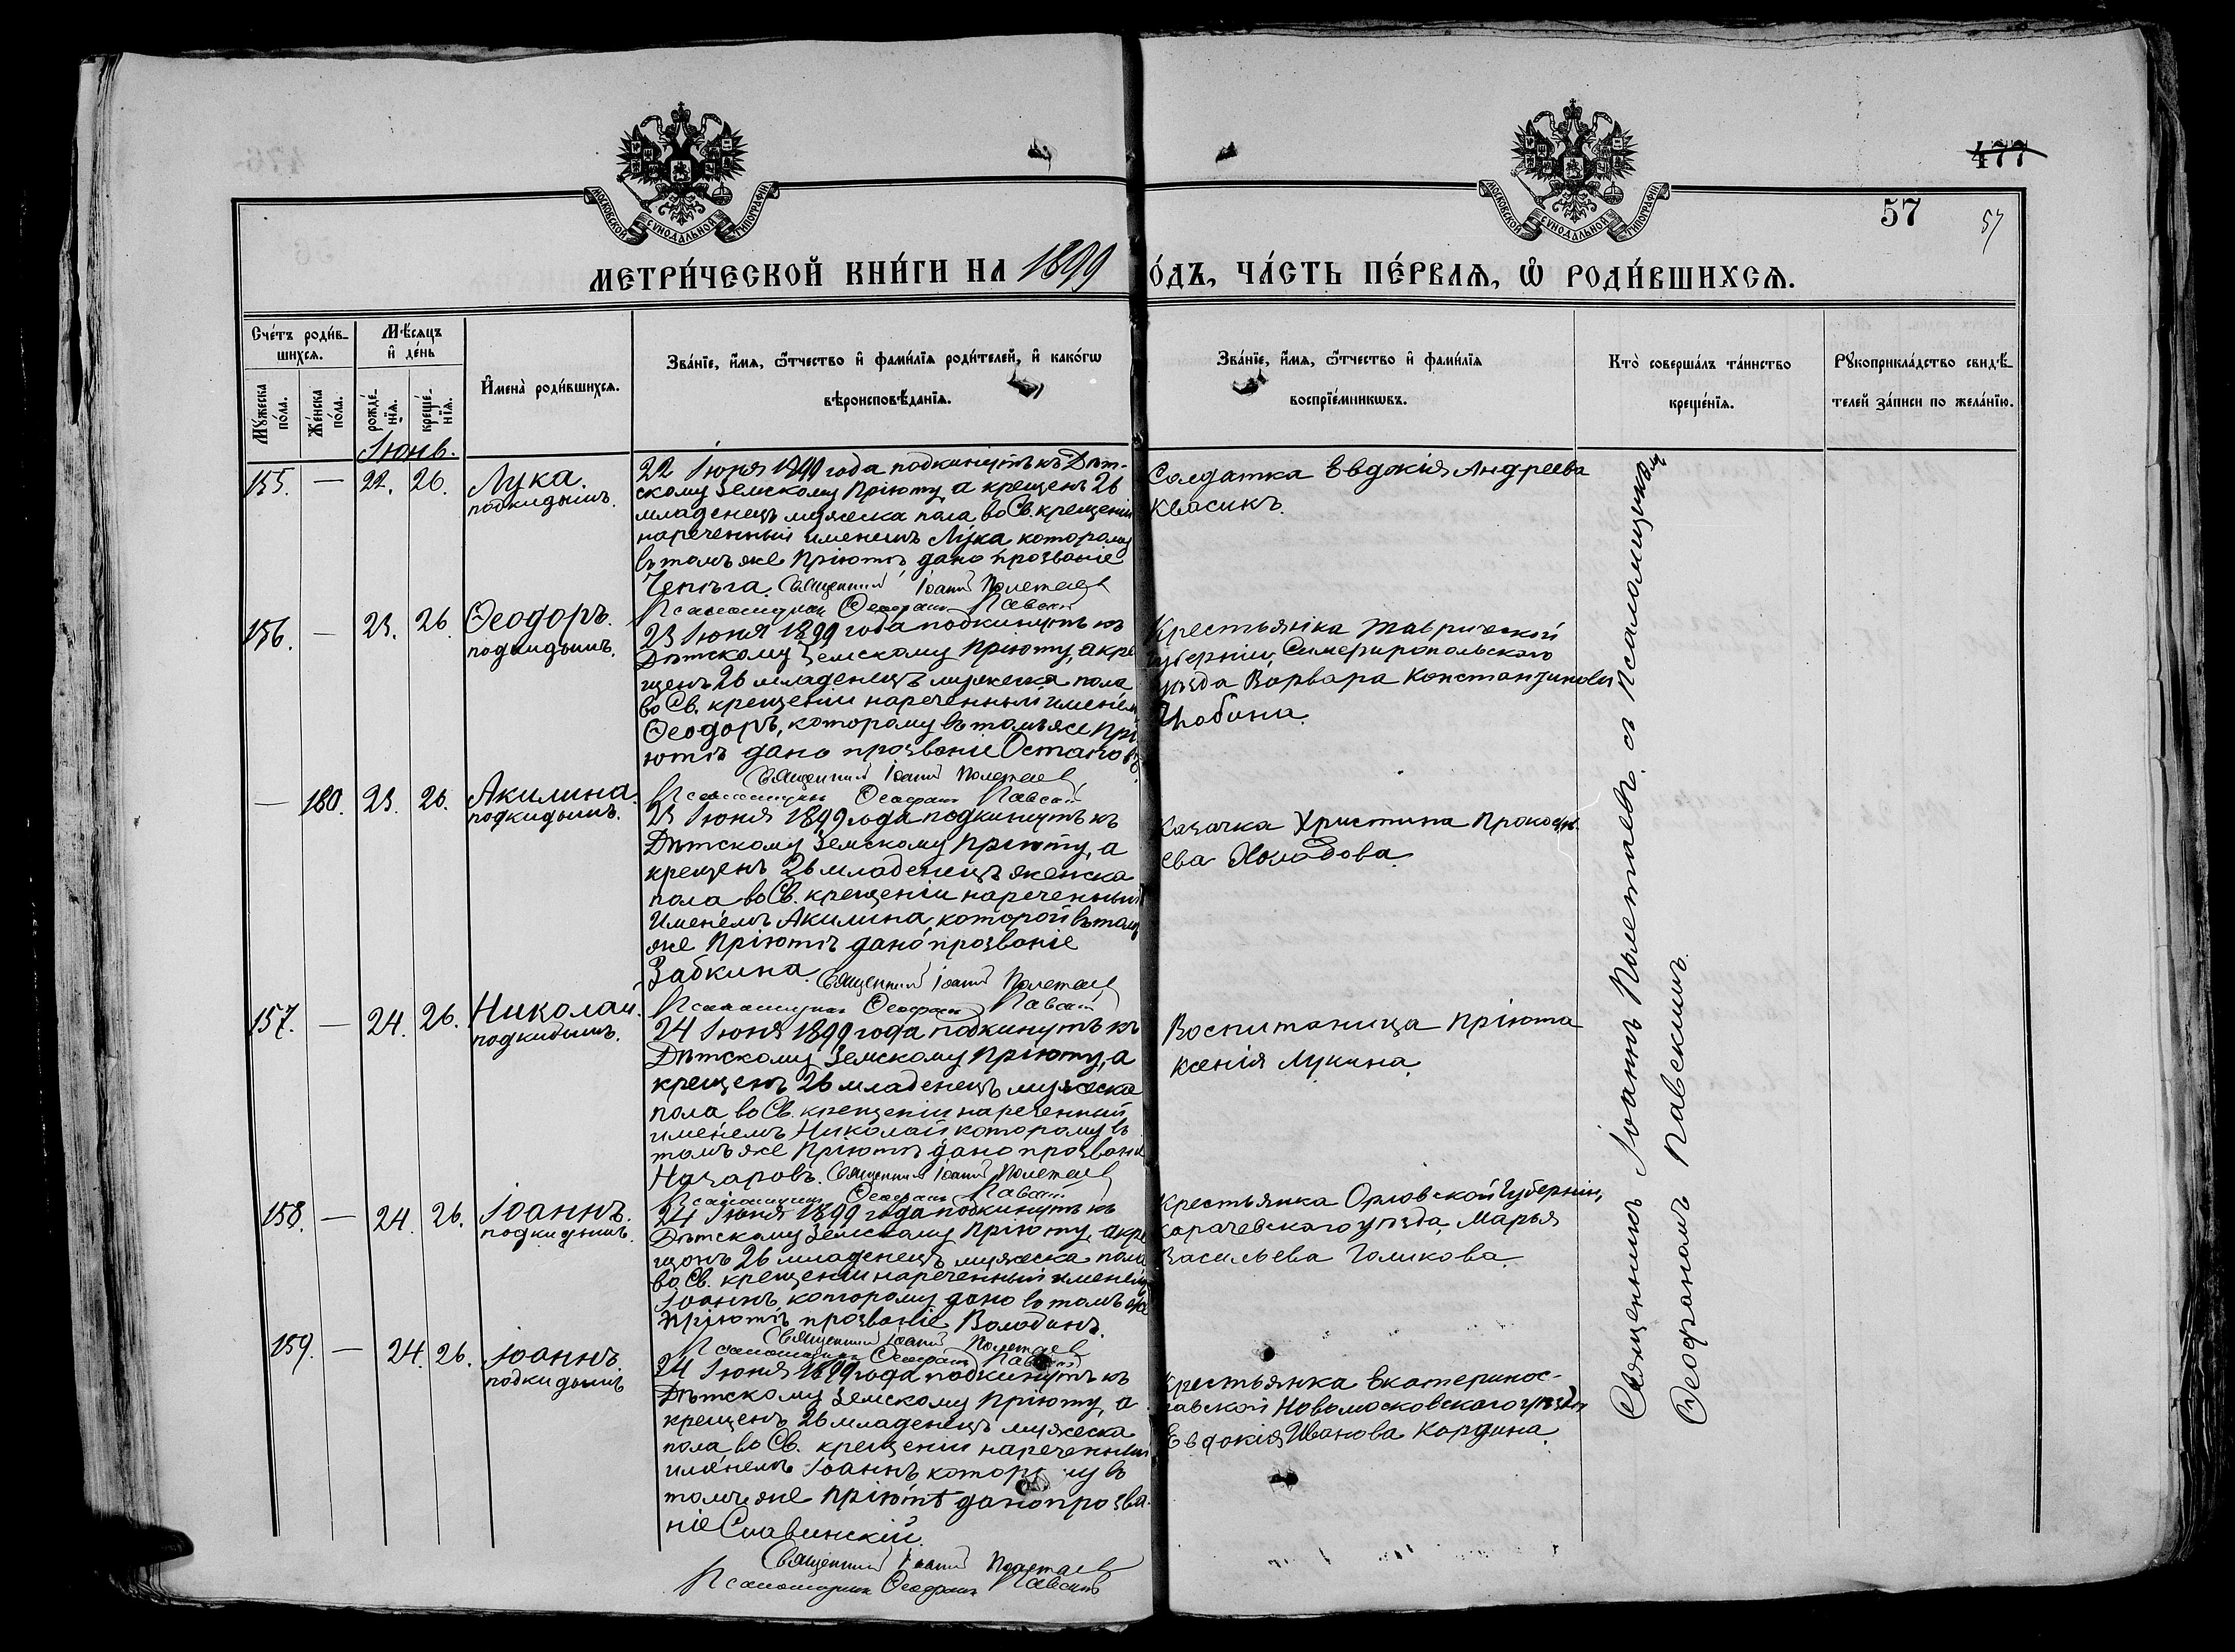 477
57
57
МОСКОВСКОЙ СѴНОДАЛЬНОЙ ТИПОГРАФІИ
МОСКОВСКОЙ СѴНОДАЛЬНОЙ ТИПОГРАФІИ
МЕТРИ́ЧЕСКОЙ КНИ́ГИ НА 1899
О́ДЪ, ЧА́СТЬ ПЕ́РВАѦ, Ѽ РОДИ́ВШИХСѦ.
Сче́тъ роди́в-
шихсѧ.
Мѣ́сѧцъ
и҆ де́нь
Мꙋ́жеска
по́ла.
Же́нска
по́ла.
рожде́-
нїѧ.
креще́-
нїѧ.
И҆мена̀ роди́вшихсѧ.
Зва́нїе, и҆́мѧ, ѻ҆́тчество и҆ фами́лїѧ роди́телей, и҆ како́гѡ
вѣроисповѣ́данїѧ.
Зва́нїе, и҆́мѧ, ѻ҆́тчество и҆ фами́лїѧ
воспрїе́мникѡвъ.
Кто̀ соверша́лъ та́инство
креще́нїѧ.
Рꙋкоприкла́дство свидѣ́-
телей за́писи по жела́нїю.
Іюнь.
155. — 22. 26. Лука.
подкидышъ.
22 Іюня 1899 года подкинутъ къ Дѣт-
скому Земскому Пріюту, а крещенъ 26
младенецъ мужеска пола во Св. крещеніи
нареченный именемъ Лука которому
въ томъ же Пріютѣ дано прозваніе
Чепіга. Священникъ Іоаннъ Полетаевъ
Псаломщикъ Ѳеофанъ Павскій
Солдатка Евдокія Андреева
Квасикъ.
156. — 23. 26. Ѳеодоръ.
подкидышъ.
23 Іюня 1899 года подкинутъ къ
Дѣтскому Земскому Пріюту, а кре
щенъ 26 младенецъ мужеска пола
во Св. крещеніи нареченный именем
Ѳеодоръ, которому въ томъ же Прі
ютѣ дано прозваніе
Священникъ Іоаннъ Полетаевъ
Псаломщикъ Ѳеофанъ Павскій
Крестьянка Таврической
губерніи, Симферопольского
уѣзда Варвара Константинова
— 180. 23. 26. Акилина.
подкидышъ.
23 Іюня 1899 года подкинутъ къ
Дѣтскому Земскому Пріюту, а
крещенъ 26 младенецъ женска
пола во Св. крещеніи нареченный
именемъ Акилина, которой въ том
же Пріютѣ дано прозваніе
Забкина. Священникъ Іоаннъ Полетаевъ
Псаломщикъ Ѳеофанъ Павскій
Казачка Христина Прокофь-
ева Холодова.
157. — 24. 26. Николай.
подкидышъ.
24 Іюня 1899 года подкинутъ къ
Дѣтскому Земскому Пріюту, а
крещенъ 26 младенецъ мужеска
пола во Св. крещеніи нареченный
именемъ Николай которому въ
томъ же Пріютѣ дано прозваніе
Назаровъ. Священникъ Іоаннъ Полетаевъ
Псаломщикъ Ѳеофанъ Павскій
Воспитаница Пріюта
Ксенія Лукина.
158. — 24. 26. Іоаннъ.
подкидышъ.
24 Іюня 1899 года подкинутъ къ
Дѣтскому Земскому Пріюту, а кре
щенъ 26 младенецъ мужеска пола
во Св. крещеніи нареченный именем
Іоаннъ, которому дано въ томъ же
Пріютѣ прозваніе Володинъ.
Священникъ Іоаннъ Полетаевъ
Псаломщикъ Ѳеофанъ Павскій
Крестьянка Орловской Губерніи,
Карачевскаго уѣзда, Марья
Васильева Голикова.
159. — 24. 26. Іоаннъ.
подкидышъ
24 Іюня 1899 года подкинутъ къ
Дѣтскому Земскому Пріюту, а
крещенъ 26 младенецъ мужеска
пола во Св. крещеніи нареченный
именемъ Іоаннъ которому въ
томъ же Пріютѣ дано прозва-
ніе Славинскій.
Священникъ Іоаннъ Полетаевъ
Псаломщикъ Ѳеофанъ Павскій
Крестьянка Екатеринос-
лавской Новомосковскаго уѣзда
Евдокія Иванова Кордина.
Священникъ Іоаннъ Полетаевъ съ Псаломщикомъ
Ѳеофаномъ Павскимъ.